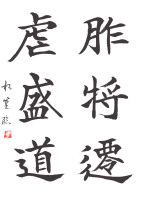 胙將遷
虐盛道